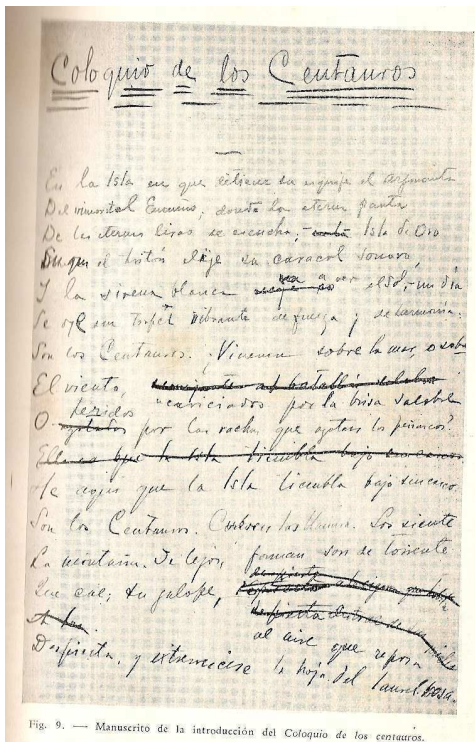 Coloquio de los Centauros
En la Isla en que detiene su esquife el argonauta
Del inmortal Ensueño, donde la eterna pauta
De las eternas liras se escucha; Isla de Oro
En que el tritón elije su caracol sonoro,
Y la sirena blanca va a ver el sol, un día
Se oye un tropel vibrante de fuerza y de harmonía.
Son los Centauros. ¿Vienen sobre la mar, o sobre
El viento, acariciados por la brisa salobre
O heridos por las rachas que agotan los
He aquí que la Isla tiembla bajo sus cascos.
Son los Centauros. Cubren la llanura. Los siente
La montaña. De lejos, forman son de torrente
Que cae; su galope, al aire que reposa
Despierta, y estremece la hoja del laurel rosa.
Fig. 9. — Manuscrito de la introducción del Coloquio de los centauros.